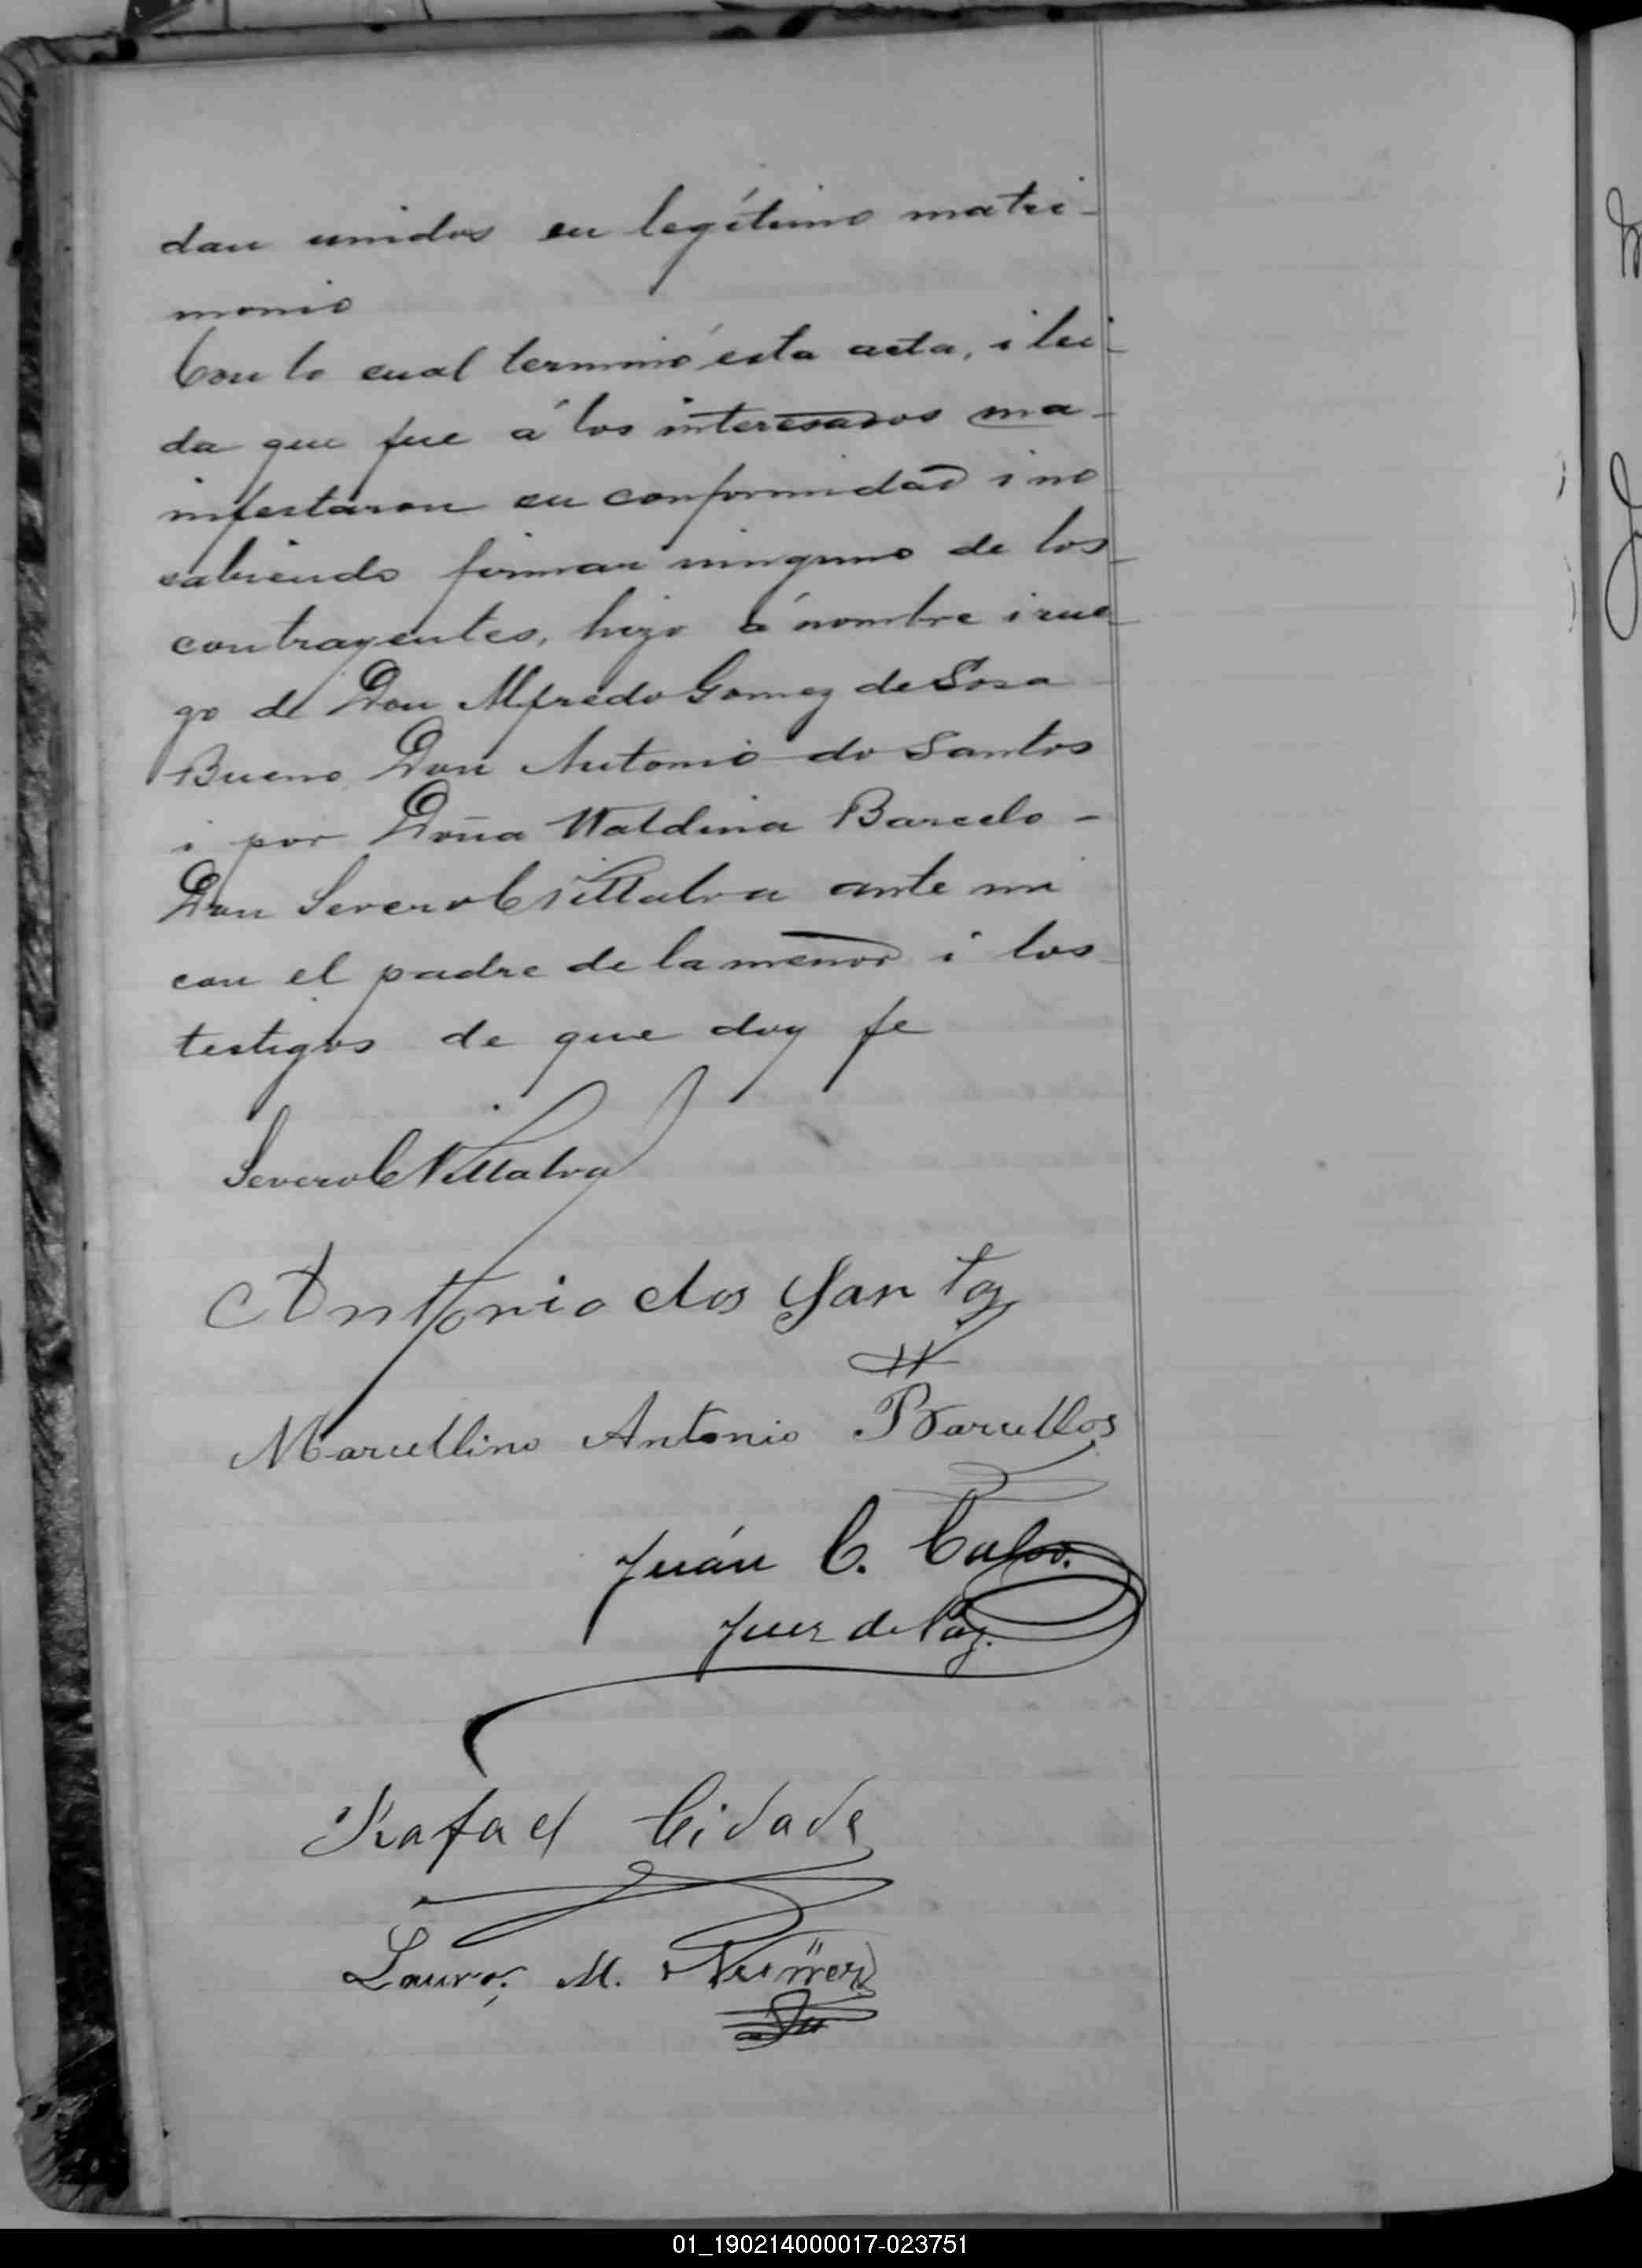 dan unidos en legítimo matri-
monio
Con lo cual terminó esta acta, i lei-
da que fue á los interesados ma-
nifestaron su conformidad i no
sabiendo firmar ninguno de los
contrayentes, hizo á nombre i rue-
go de Don Alfredo Gomez de Sosa
Bueno Don Antonio do Santos
i por Doña Waldina Barcelo -
Don Severo C Villalva ante mi
con el padre de la menor i los
testigos de que doy fe
Severo C Villalva
Antonio dos Santos
Marcellino Antonio Barcellos
Juán C. Calvo.
Juez de Paz.
Rafael Cidade
Lauro, M. Nuñez
01_190214000017-023751